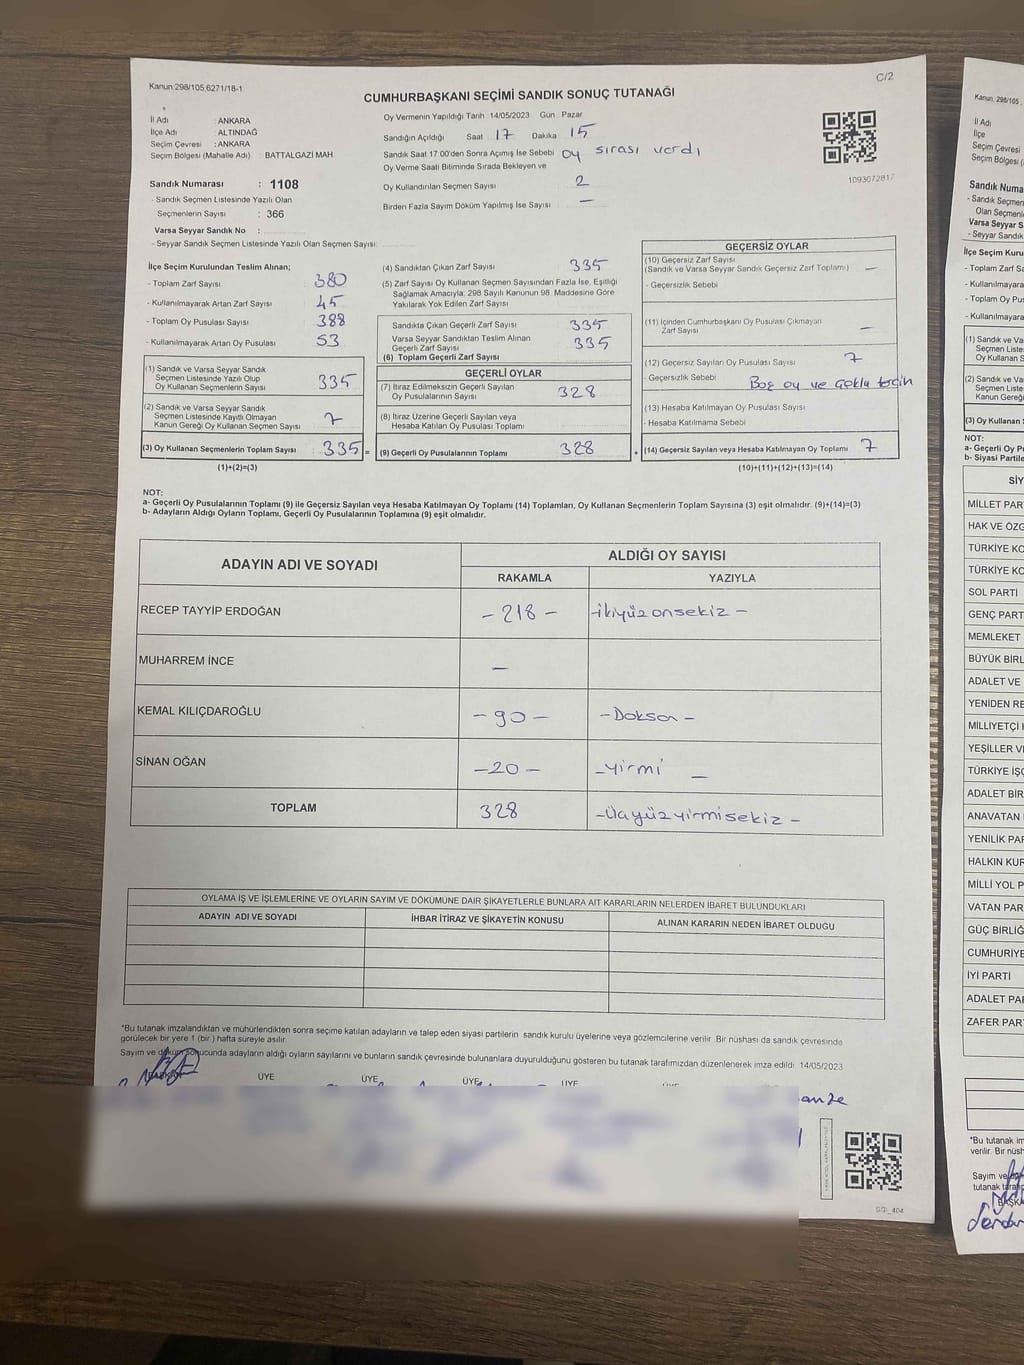 Kanun:298/105,6271/18-1
C/2
CUMHURBAŞKANI SEÇİMİ SANDIK SONUÇ TUTANAĞI
İl Adı : ANKARA
İlçe Adı : ALTINDAĞ
Seçim Çevresi : ANKARA
Seçim Bölgesi (Mahalle Adı) : BATTALGAZİ MAH
Oy Vermenin Yapıldığı Tarih :14/05/2023 Gün : Pazar
Sandığın Açıldığı Saat 17 Dakika 15
Sandık Saat 17:00'den Sonra Açımış İse Sebebi oy sırası vardı
Oy Verme Saati Bitiminde Sırada Bekleyen ve
Oy Kullandırılan Seçmen Sayısı 2
Birden Fazla Sayım Döküm Yapılmış İse Sayısı —
1093072817
Sandık Numarası : 1108
- Sandık Seçmen Listesinde Yazılı Olan
Seçmenlerin Sayısı : 366
Varsa Seyyar Sandık No :
- Seyyar Sandık Seçmen Listesinde Yazılı Olan Seçmen Sayısı:
İlçe Seçim Kurulundan Teslim Alınan;
- Toplam Zarf Sayısı : 380
- Kullanılmayarak Artan Zarf Sayısı : 45
- Toplam Oy Pusulası Sayısı : 388
- Kullanılmayarak Artan Oy Pusulası : 53
(1) Sandık ve Varsa Seyyar Sandık
Seçmen Listesinde Yazılı Olup
Oy Kullanan Seçmenlerin Sayısı 335
(2) Sandık ve Varsa Seyyar Sandık
Seçmen Listesinde Kayıtlı Olmayan
Kanun Gereği Oy Kullanan Seçmen Sayısı
(3) Oy Kullanan Seçmenlerin Toplam Sayısı 335 =
(1)+(2)=(3)
(4) Sandıktan Çıkan Zarf Sayısı 335
(5) Zarf Sayısı Oy Kullanan Seçmen Sayısından Fazla İse, Eşitliği
Sağlamak Amacıyla; 298 Sayılı Kanunun 98. Maddesine Göre
Yakılarak Yok Edilen Zarf Sayısı
Sandıkta Çıkan Geçerli Zarf Sayısı 335
Varsa Seyyar Sandıktan Teslim Alınan
Geçerli Zarf Sayısı 335
(6) Toplam Geçerli Zarf Sayısı
GEÇERLİ OYLAR
(7) İtiraz Edilmeksizin Geçerli Sayılan
Oy Pusulalarının Sayısı 328
(8) İtiraz Üzerine Geçerli Sayılan veya
Hesaba Katılan Oy Pusulası Toplamı
(9) Geçerli Oy Pusulalarının Toplamı 328 +
GEÇERSİZ OYLAR
(10) Geçersiz Zarf Sayısı
(Sandık ve Varsa Seyyar Sandık Geçersiz Zarf Toplamı) —
- Geçersizlik Sebebi
(11) İçinden Cumhurbaşkanı Oy Pusulası Çıkmayan
Zarf Sayısı —
(12) Geçersiz Sayılan Oy Pusulası Sayısı 7
- Geçersizlik Sebebi Boş oy ve Çoklu tercih
(13) Hesaba Katılmayan Oy Pusulası Sayısı
- Hesaba Katılmama Sebebi
(14) Geçersiz Sayılan veya Hesaba Katılmayan Oy Toplamı 7
(10)+(11)+(12)+(13)=(14)
NOT:
a- Geçerli Oy Pusulalarının Toplamı (9) ile Geçersiz Sayılan veya Hesaba Katılmayan Oy Toplamı (14) Toplamları, Oy Kullanan Seçmenlerin Toplam Sayısına (3) eşit olmalıdır. (9)+(14)=(3)
b- Adayların Aldığı Oyların Toplamı, Geçerli Oy Pusulalarının Toplamına (9) eşit olmalıdır.
ADAYIN ADI VE SOYADI
ALDIĞI OY SAYISI
RAKAMLA YAZIYLA
RECEP TAYYİP ERDOĞAN - 218 - -ikiyüzonsekiz -
MUHARREM İNCE —
KEMAL KILIÇDAROĞLU - 90 - - Doksan -
SİNAN OĞAN - 20 - - yirmi -
TOPLAM 328 - Üçyüzyirmisekiz -
OYLAMA İŞ VE İŞLEMLERİNE VE OYLARIN SAYIM VE DÖKÜMÜNE DAİR ŞİKAYETLERLE BUNLARA AİT KARARLARIN NELERDEN İBARET BULUNDUKLARI
ADAYIN ADI VE SOYADI İHBAR İTİRAZ VE ŞİKAYETİN KONUSU ALINAN KARARIN NEDEN İBARET OLDUĞU
*Bu tutanak imzalandıktan ve mühürlendikten sonra seçime katılan adayların ve talep eden siyasi partilerin sandık kurulu üyelerine veya gözlemcilerine verilir. Bir nüshası da sandık çevresinde
görülecek bir yere 1 (bir) hafta süreyle asılır.
Sayım ve döküm sonucunda adayların aldığı oyların sayılarını ve bunların sandık çevresinde bulunanlara duyurulduğunu gösteren bu tutanak tarafımızdan düzenlenerek imza edildi. 14/05/2023
BAŞKAN ÜYE ÜYE ÜYE ÜYE
Kanun: 298/105
İl Adı
İlçe
Seçim Çevresi
Seçim Bölgesi
Sandık Numa
- Sandık Seçmen
Olan Seçmen
Varsa Seyyar S
- Seyyar Sandık
İlçe Seçim Kuru
- Toplam Zarf S
- Kullanılmayara
- Toplam Oy Pu
- Kullanılmayara
(1) Sandık ve Va
Seçmen Liste
Oy Kullanan S
(2) Sandık ve Va
Seçmen Liste
Kanun Gereği
(3) Oy Kullanan
NOT:
a- Geçerli Oy P
b- Siyasi Partile
SİY
MİLLET PAR
HAK VE ÖZG
TÜRKİYE KO
TÜRKİYE KO
SOL PARTİ
GENÇ PART
MEMLEKET
BÜYÜK BİRL
ADALET VE
YENİDEN RE
MİLLİYETÇİ H
YEŞİLLER VE
TÜRKİYE İŞÇ
ADALET BİR
ANAVATAN
YENİLİK PAR
HALKIN KUR
MİLLİ YOL P
VATAN PAR
GÜÇ BİRLİĞ
CUMHURİYE
İYİ PARTİ
ADALET PA
ZAFER PART
*Bu tutanak im
verilir. Bir nüsh
Sayım ve
tutanak taraf
BAŞKA